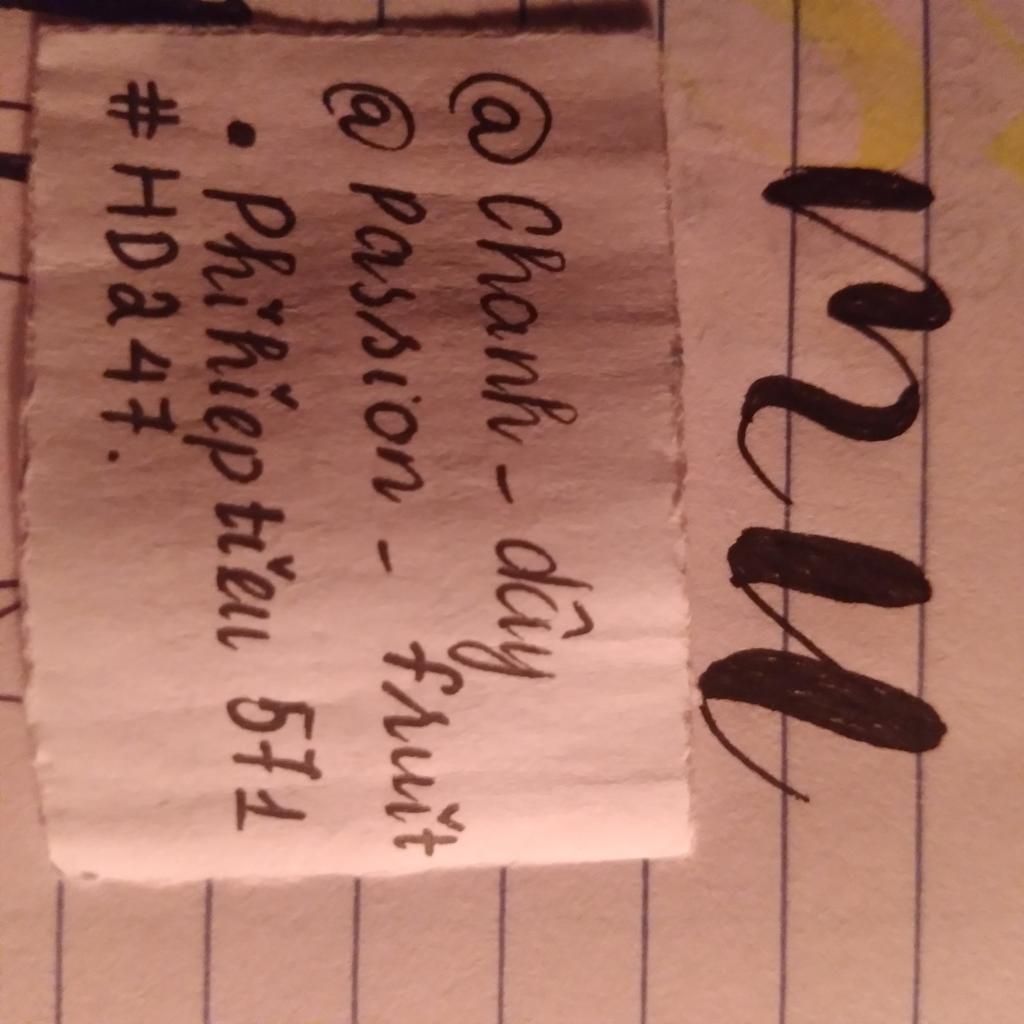 nu
@ Chanh - dây
@ Passion - fruit
• Phihieptieu 571
#HD247.